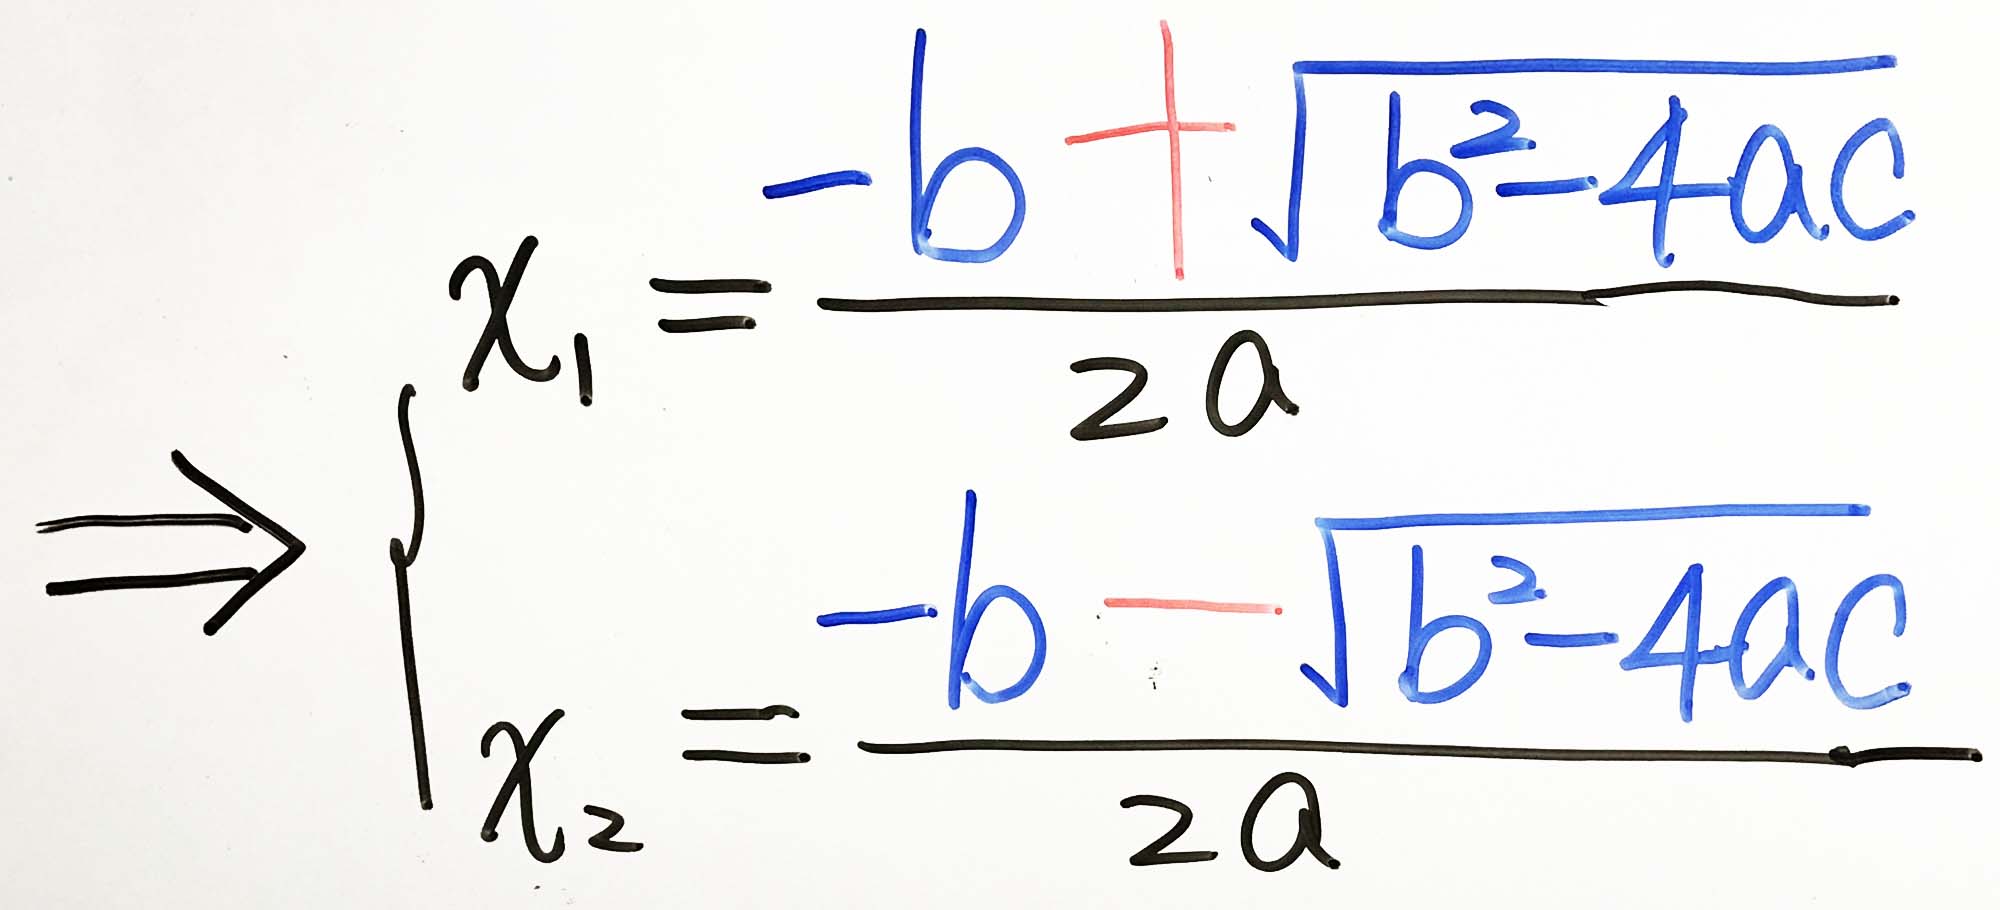 ⇒ { x₁ = (-b + √(b²-4ac)) / 2a
x₂ = (-b - √(b²-4ac)) / 2a